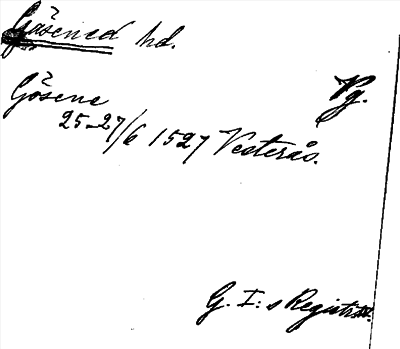 Gäsened hd.
Vg.
Gösene
25-27/6 1527 Vesterås.
G. I:s Registr.